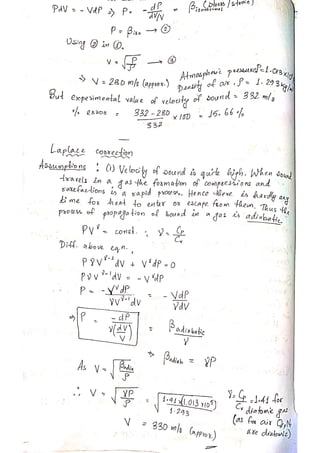 PΔV = - VΔP ⇒ P = - dP / dV/V = β isothermal
P = βiso → ②
Using ② in ①.
v = √P/ρ → ③
⇒ V = 280 m/s (approx.) Atmospheric pressure P = 1.013 x 10
Density of air, ρ = 1.293 kg/
But experimental value of velocity of sound = 332 m/s
% error = 332 - 280 / 332 x 100 = 15.66 %
Laplace correction
Assumptions : (i) Velocity of sound is quite high. When sound
travels in a gas the formation of compressions and
rarefactions is a rapid process. Hence there is hardly any
time for heat to enter or escape from them. Thus the
process of propagation of sound in a gas is adiabatic.
PVᵞ = const. ∵ γ = Cp / Cv
Diff. above eqn.,
PγVᵞ⁻¹dV + VᵞdP = 0
PγVᵞ⁻¹dV = - VᵞdP
P = - VᵞdP / γVᵞ⁻¹dV = - VdP / γdV
⇒ P = - dP / γ(dV/V) = βadiabatic / γ
⇒ βadiab = γP
As V = √βadia / ρ
∴ V = √γP / ρ = √1.41 x (1.013 x 10⁵) / 1.293 γ = Cp / Cv = 1.41 for diatomic gas
(as for air O₂, N
are diatomic)
V = 330 m/s (approx.)